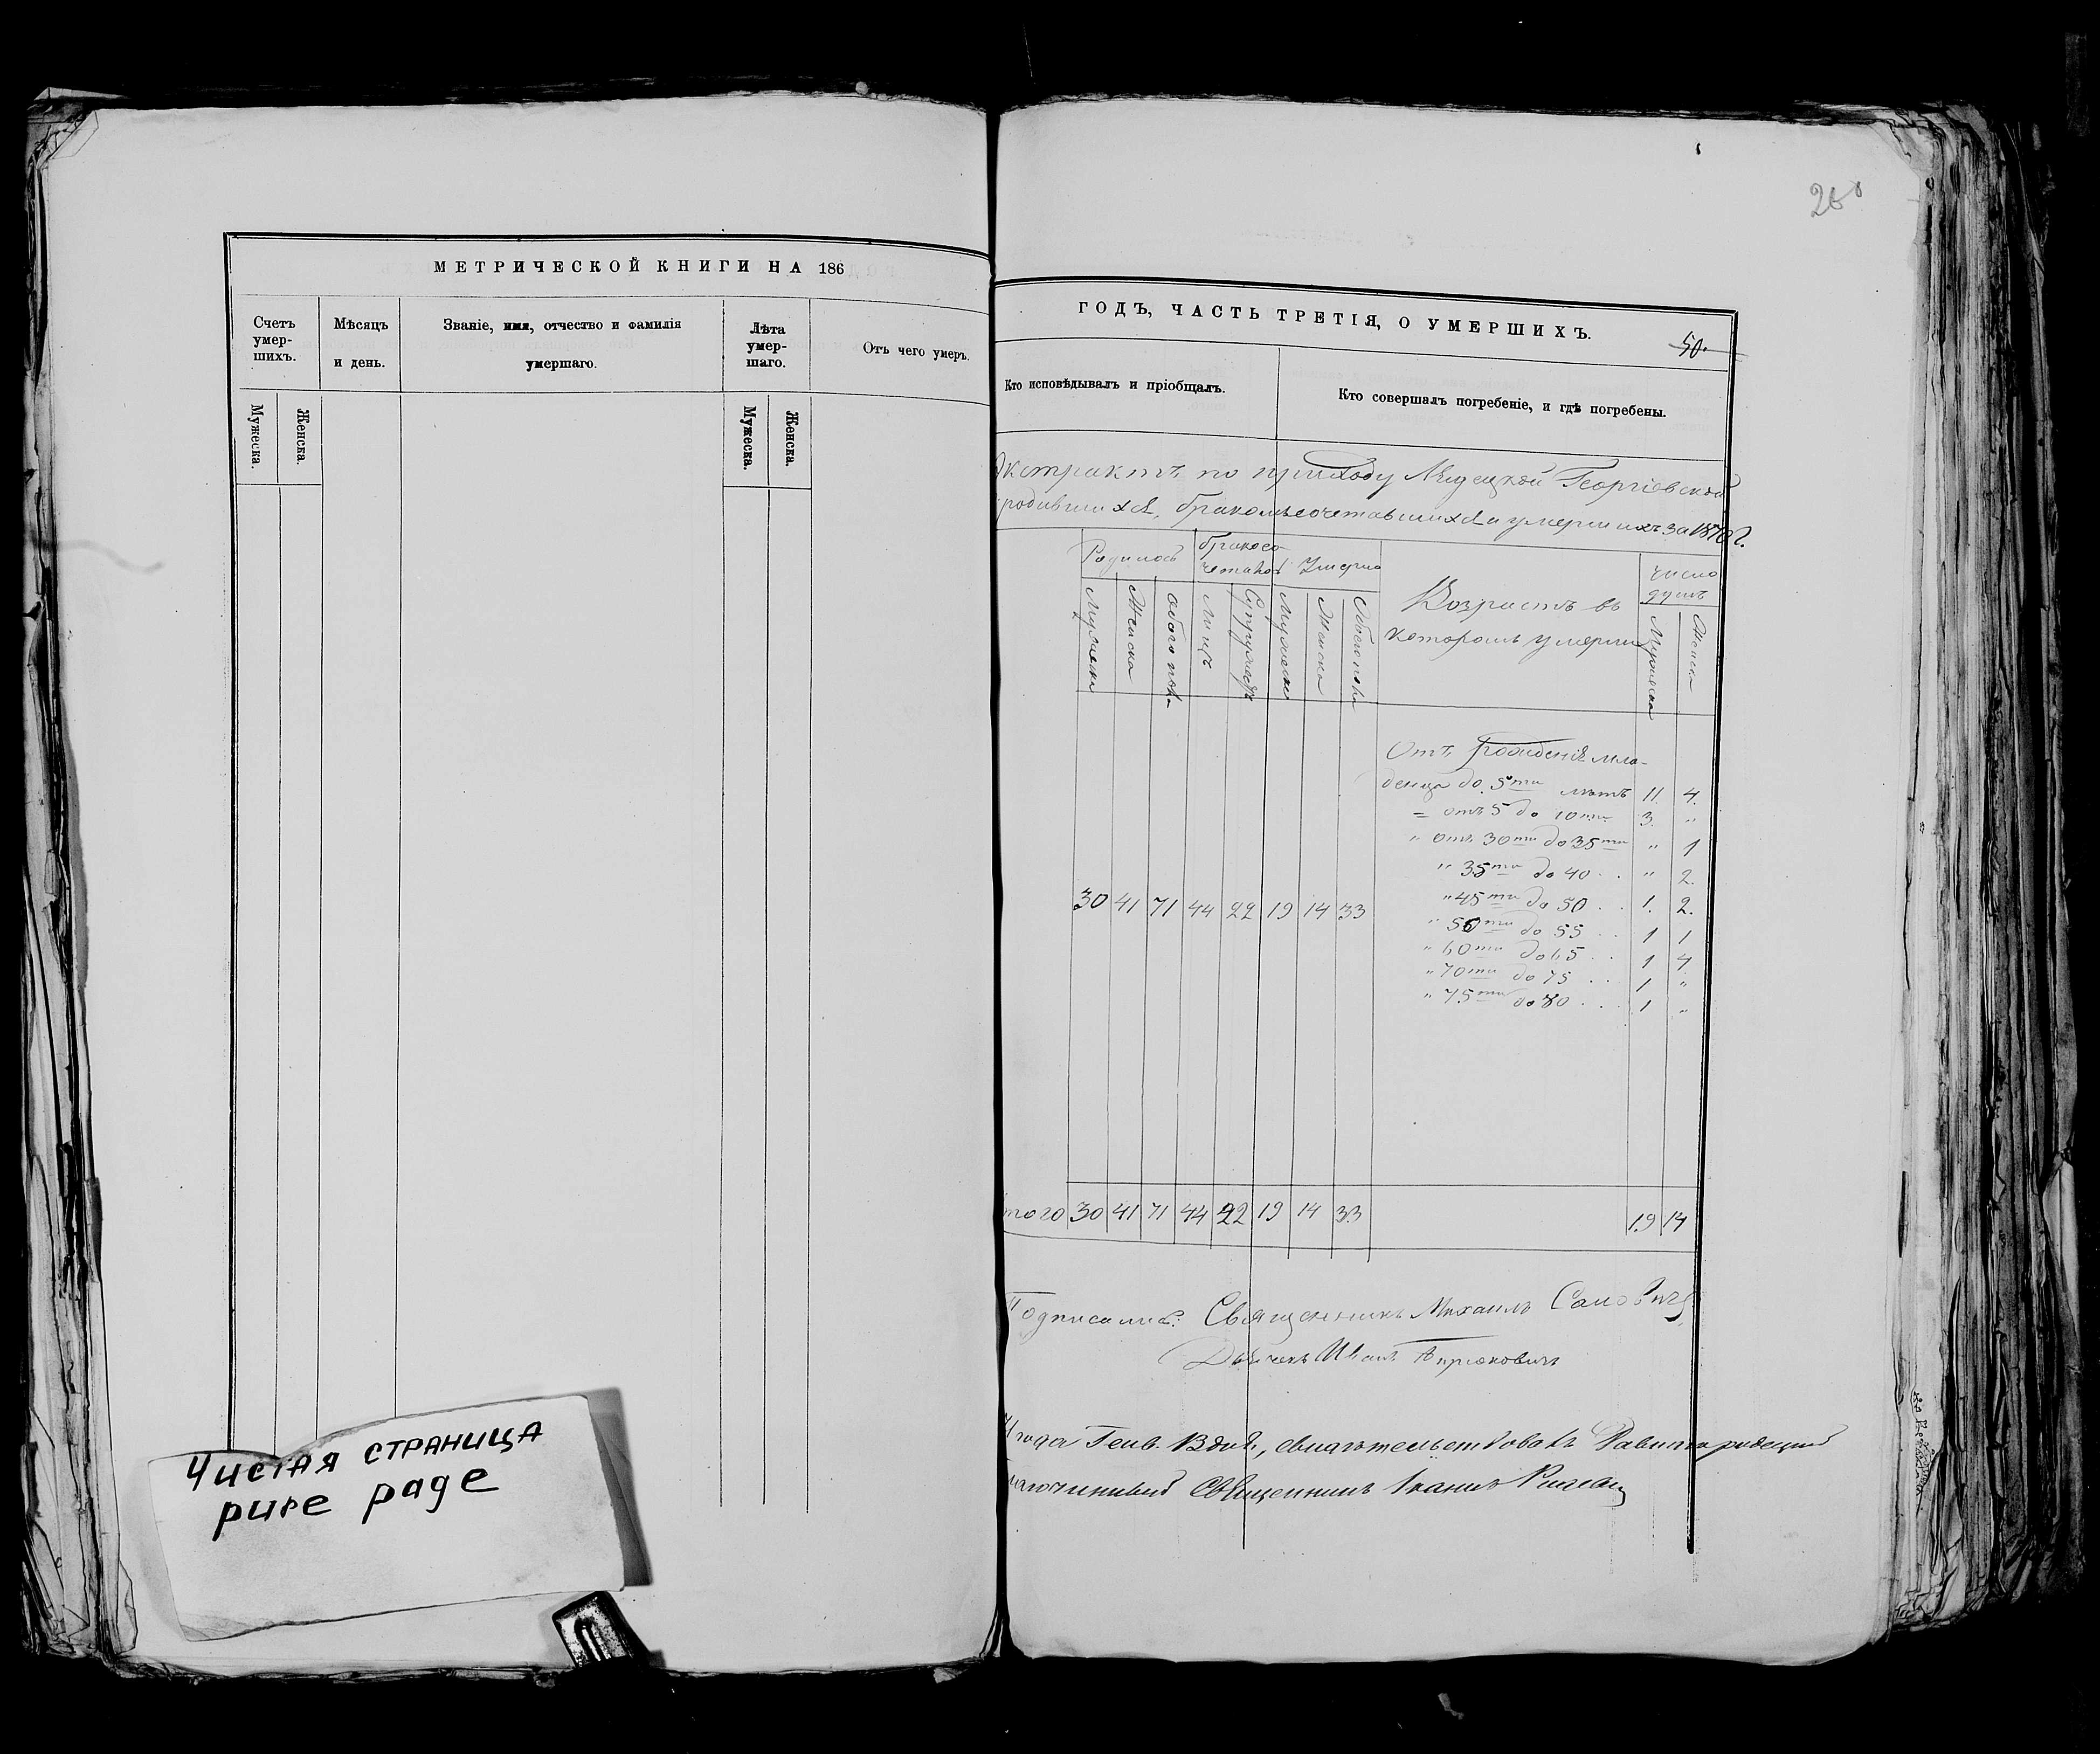 МЕТРИЧЕСКОЙ КНИГИ НА 186
Счетъ умер-шихъ.
Мѣсяцъ и день.
Званіе, имя, отчество и фамилія умершаго.
Лѣта умер-шаго.
Отъ чего умеръ.
Мужеска.
Женска.
Мужеска.
Женска.
Чистая страница
pure page
260
ГОДЪ, ЧАСТЬ ТРЕТІЯ, О УМЕРШИХЪ.
50.
Кто исповѣдывалъ и пріобщалъ.
Кто совершалъ погребеніе, и гдѣ погребены.
Экстрактъ по приходу Георгіевской
родившихся, бракомъсочетавшихся и умершихъ за 1870 г.
Родилось
бракосо-четалось
Умерло
Возрастъ въ которомъ умерли
число душъ
Мужеска
Женска
обоего пола
Лицъ
Супружествъ
Мужеска
Женска
Обоего пола
Мужеска
Женска
Отъ рожденія мла-
денца до 5ти лѣтъ 11. 4.
= отъ 5 до 10ти 3. "
" отъ 30ти до 35ти " 1
" 35ти до 40 . . " 2.
" 45ти до 50 . . 1. 2.
" 50ти до 55 . . 1 1
" 60ти до 65 . . 1 4
" 70ти до 75 . . 1 "
" 75ти до 80 . . . 1 "
30 41 71 44 22 19 14 33
того 30 41 71 44 22 19 14 33 19 14
Подписали: Священникъ Михаилъ
Дьячекъ Иванъ
года Генв. дня, свидѣтельствовалъ
Священникъ